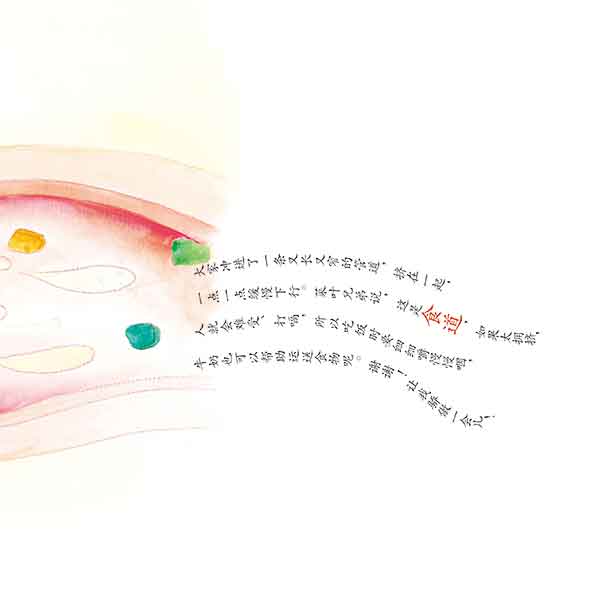 大家冲进了一条又长又窄的管道，挤在一起，
一点一点缓慢下行。菜叶兄弟说，这是食道，如果太拥挤，
人就会难受、打嗝，所以吃饭时要细细嚼慢慢咽，
牛奶也可以帮助运送食物呢。谢谢！让我骄傲一会儿！